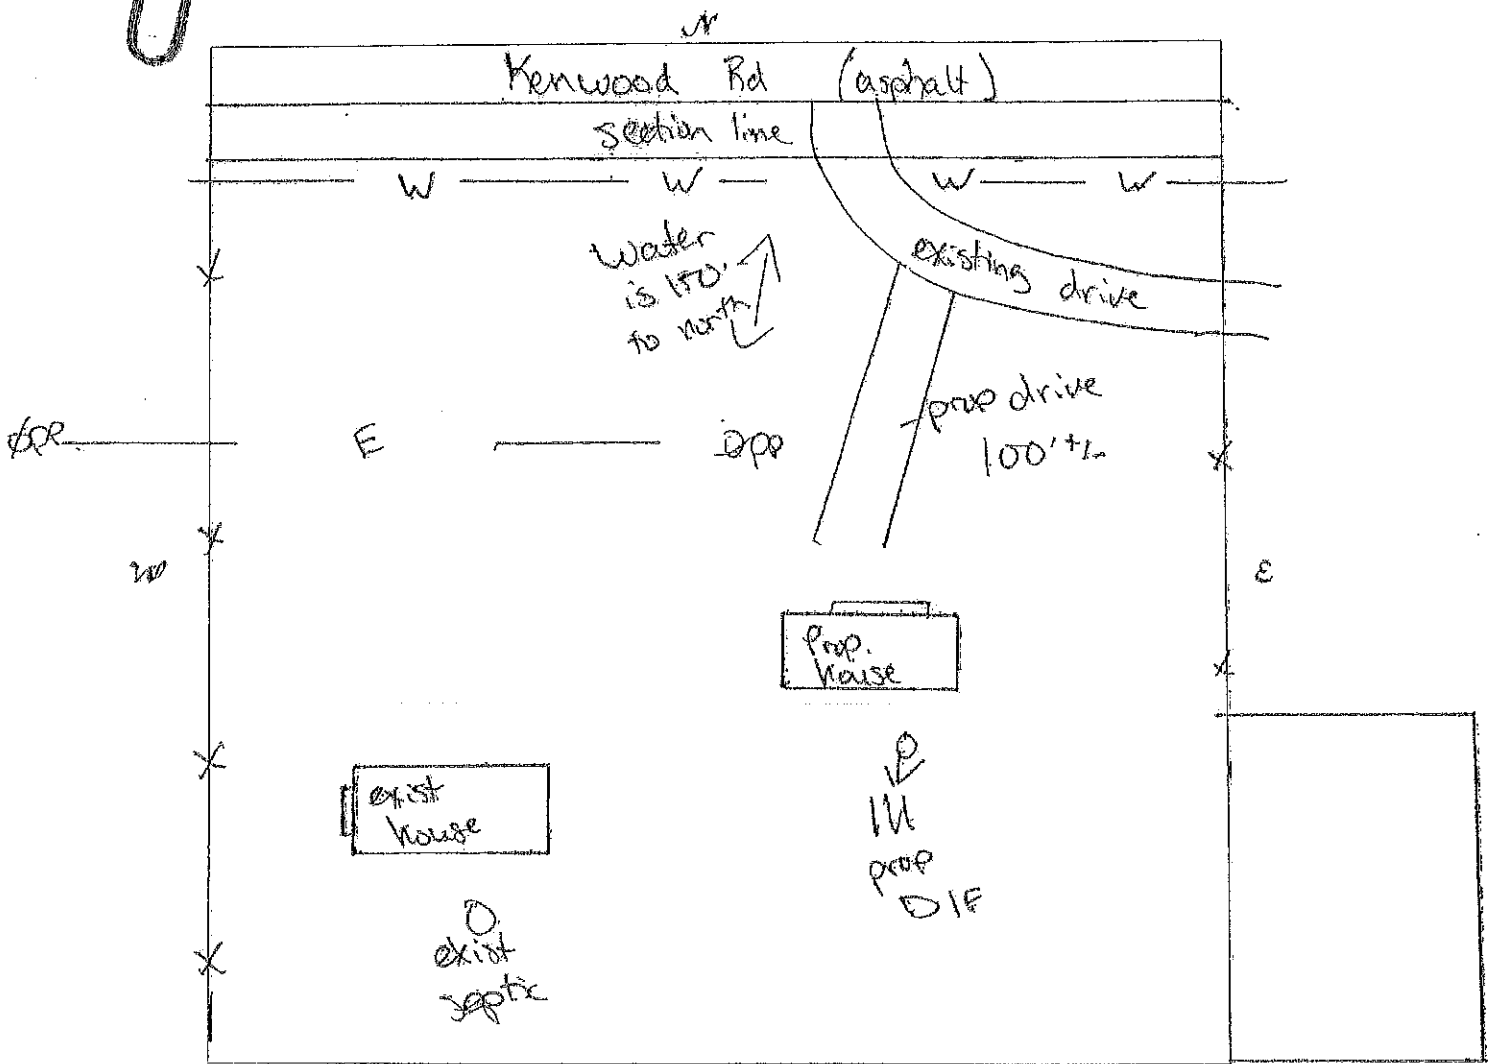 N
Kenwood Rd (asphalt)
section line
W W W W
water
is 150'
to north
existing drive
prop drive
100' +/-
pp E pp
W
E
Prop.
house
exist
house
prop
exist
septic